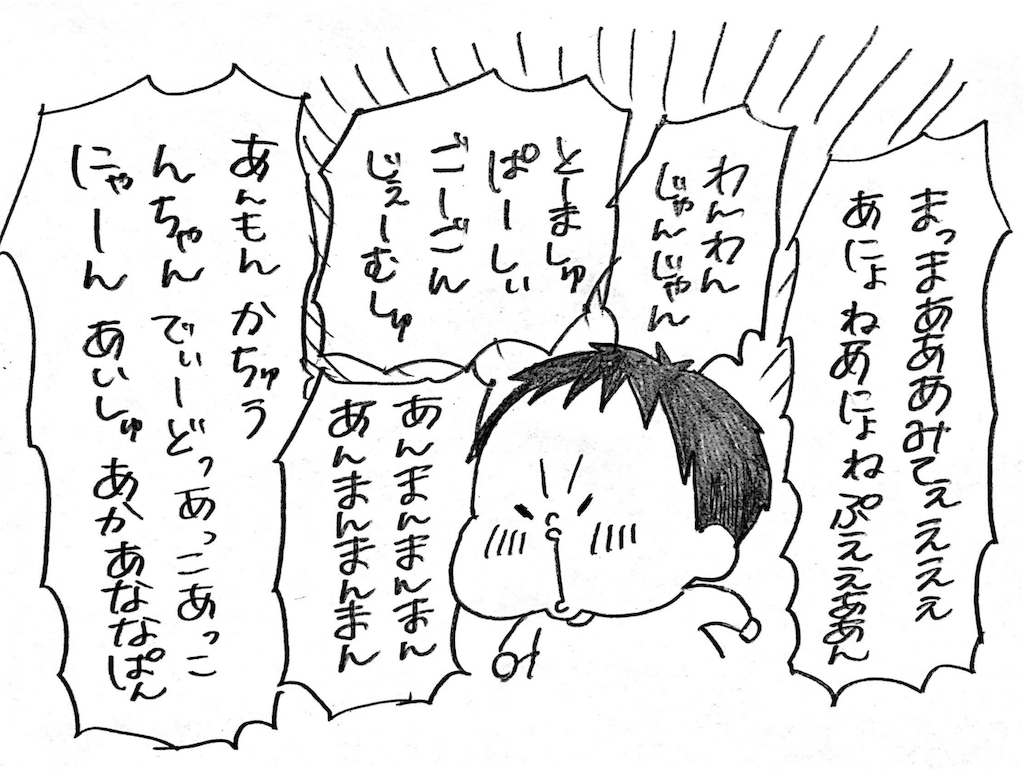 まっまあああみてぇえええ
あにょねあにょねぷええああん
わんわん
じゃんじゃん
とーましゅ
ぱーしぃ
ごーごん
じぇーむしゅ
あんまんまんまん
あんまんまんまん
あんもん かちゅう
んちゃん でぃーどっあっこあっこ
にゃーん あいしゅ あかあななぱん